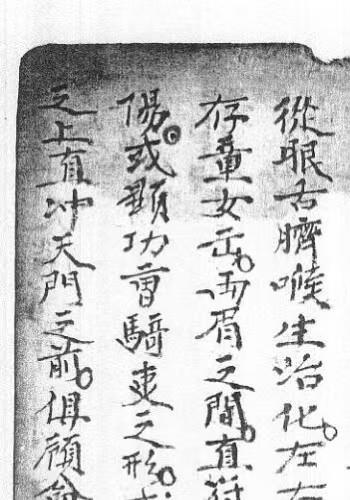 從眼舌臍喉生治化。左右
存童女岳。両眉之間。直符
傷。或顕功曺騎吏之形。或
之上直冲天門之前。俱領